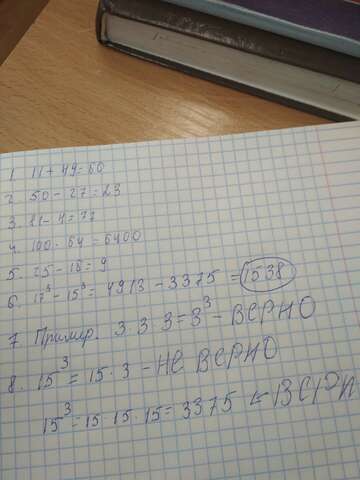 1 11+49=60
2. 50-27=23
3. 81-4=77
4. 100·64=6400
5. 25-16=9
6. 17³-15³=4913-3375=1538
7 Пример. 3·3·3=3³-ВЕРНО
8. 15³=15·3-НЕ ВЕРНО
15³=15·15·15=3375 ←ВЕРН